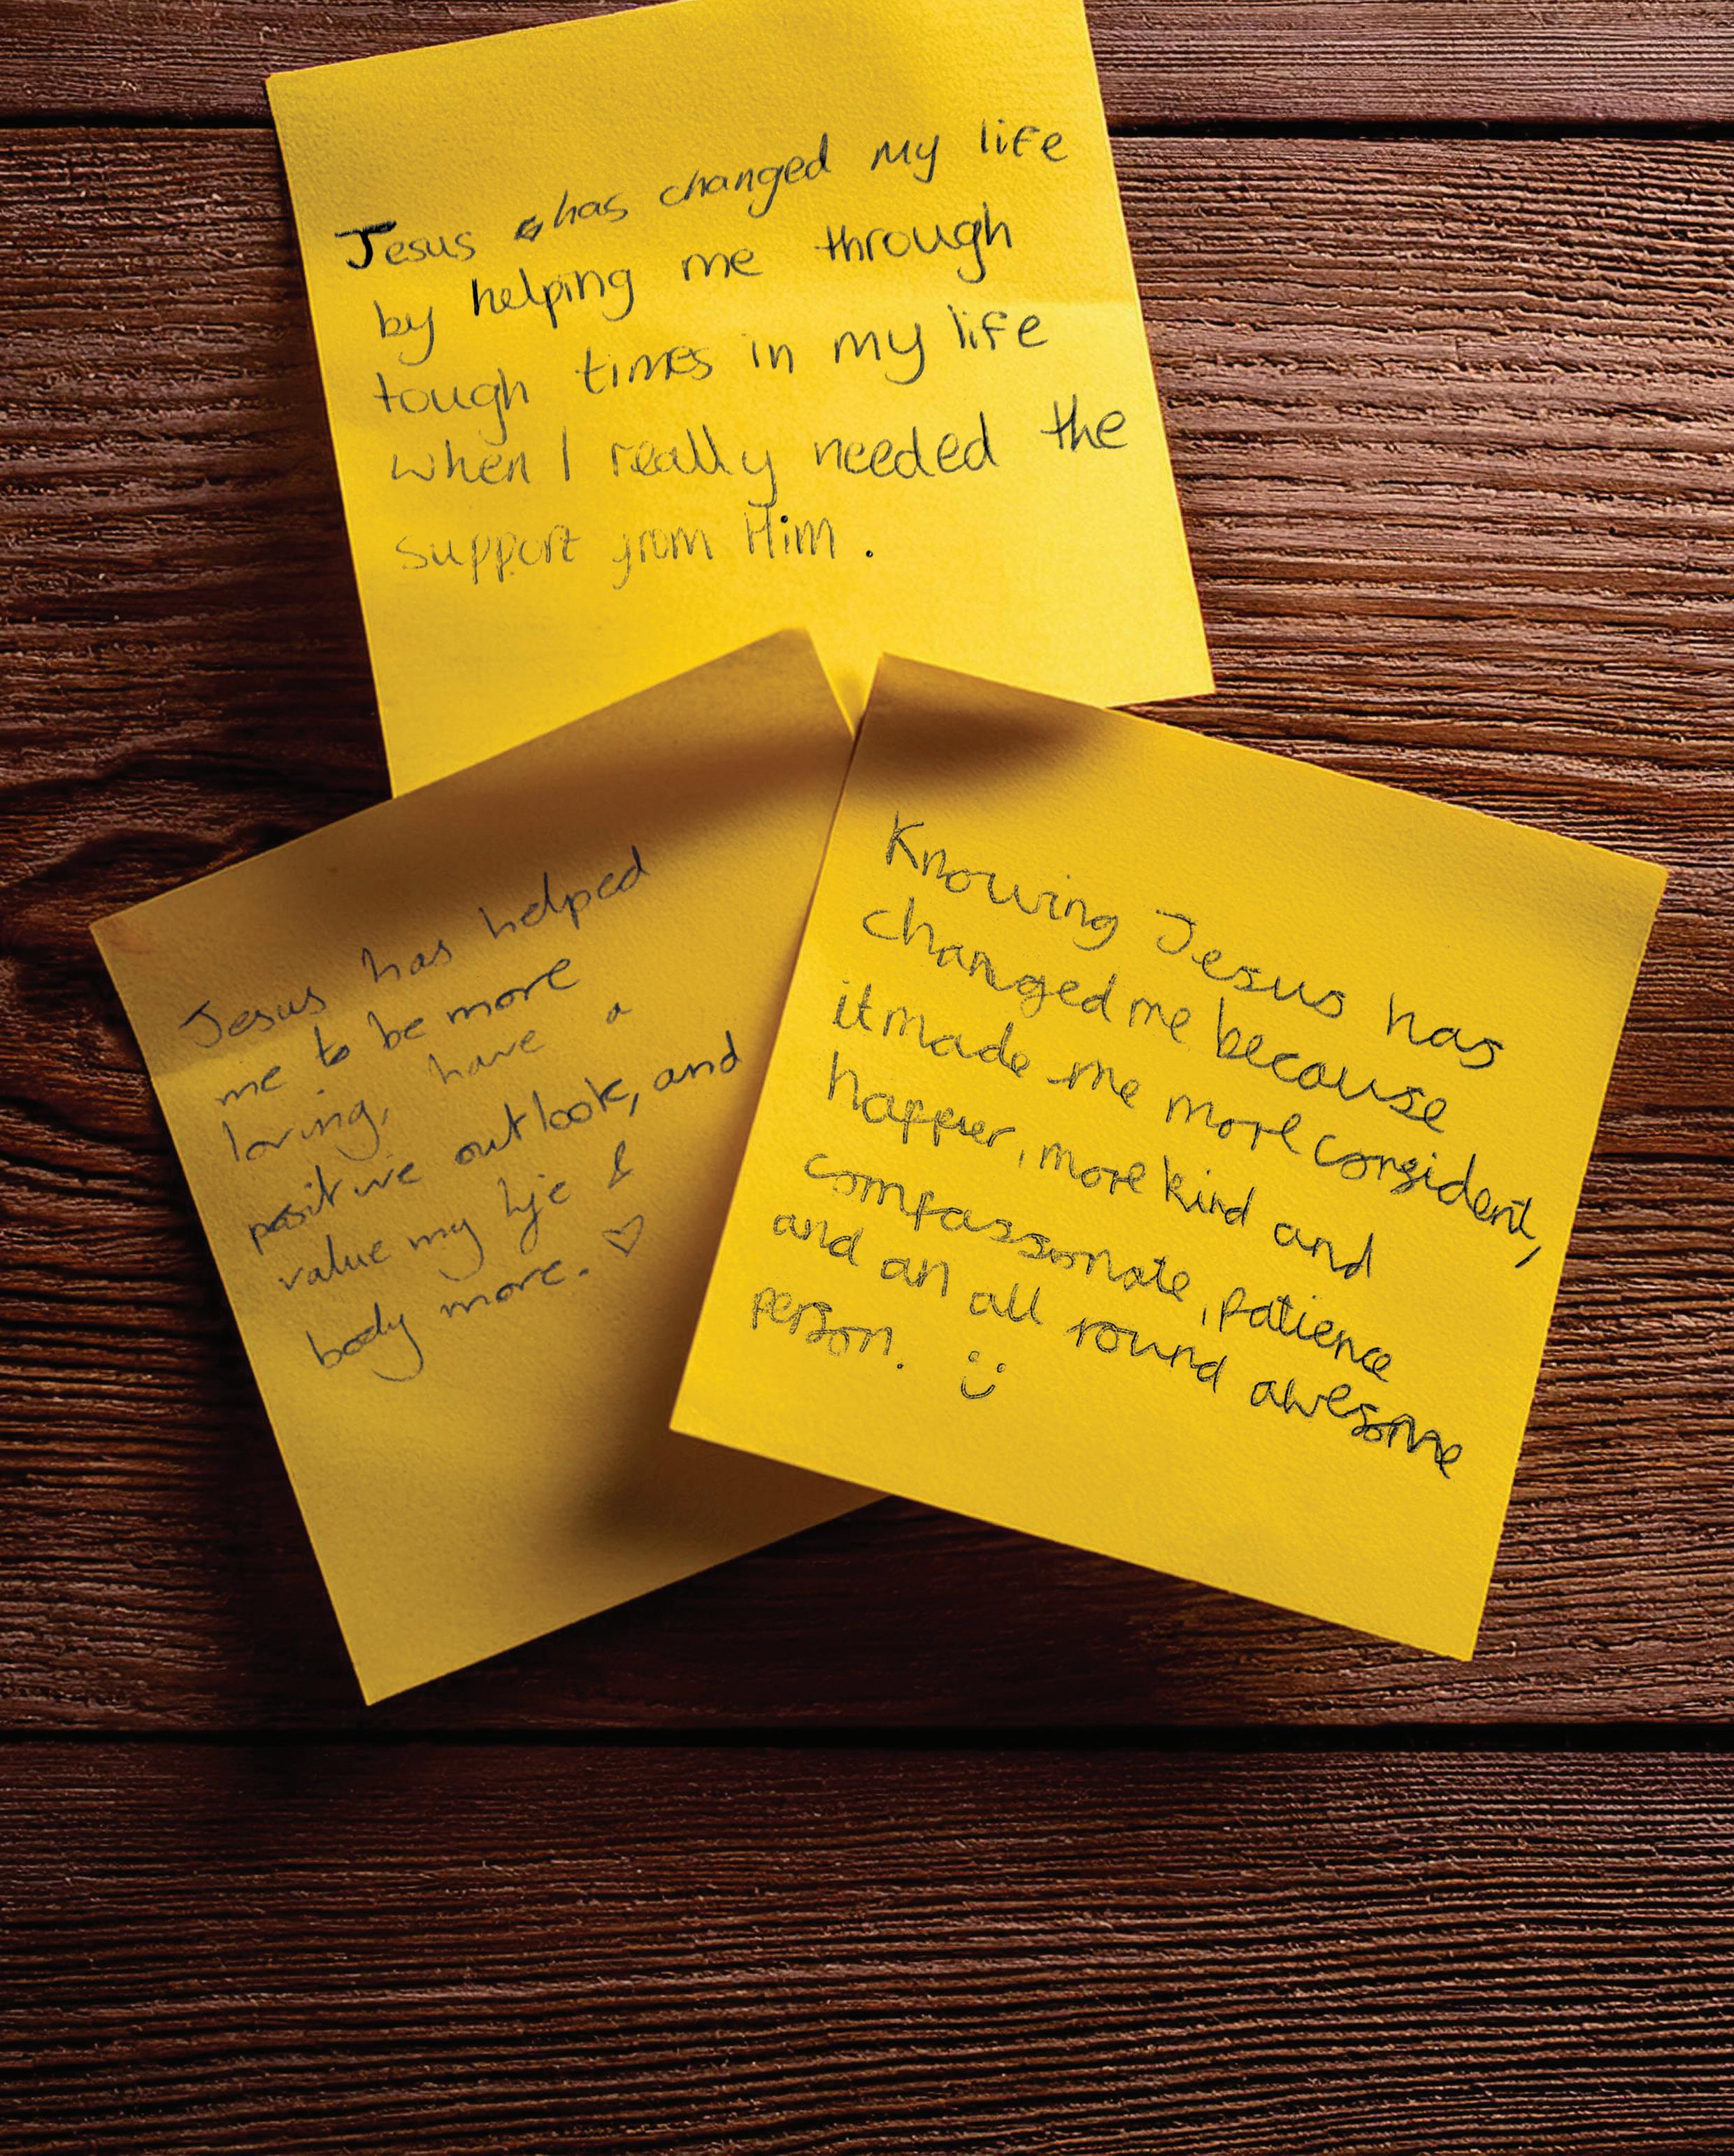 Jesus has changed my life
by helping me through
tough times in my life
when I really needed the
support from Him.
Jesus has helped
me to be more
loving, have a
positive outlook, and
value my life &
body more. ♡
Knowing Jesus has
changed me because
it made me more confident,
happier, more kind and
compassionate, patience
and an all round awesome
person. :)